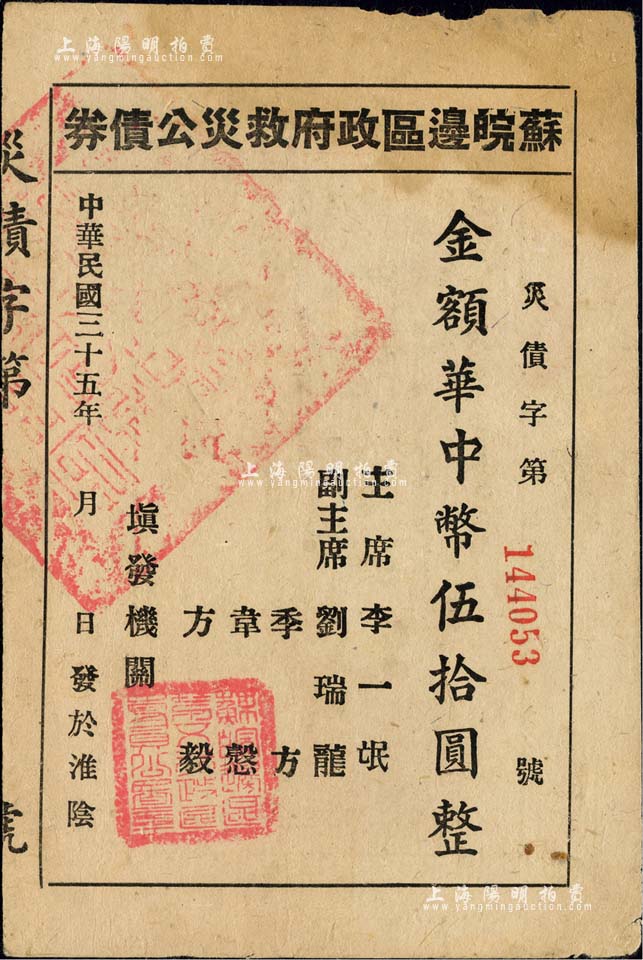 上海陽明拍賣
www.yangmingauction.com
蘇皖邊區政府救災公債券
災債字第 144053 號
金額華中幣伍拾圓整
主席李一氓
副主席劉瑞龍
季方
韋慤
方毅
塡發機關
中華民國三十五年 月 日發於淮陰
災債字第 號
上海陽明拍賣
www.yangmingauction.com
上海陽明拍賣
www.yangmingauction.com